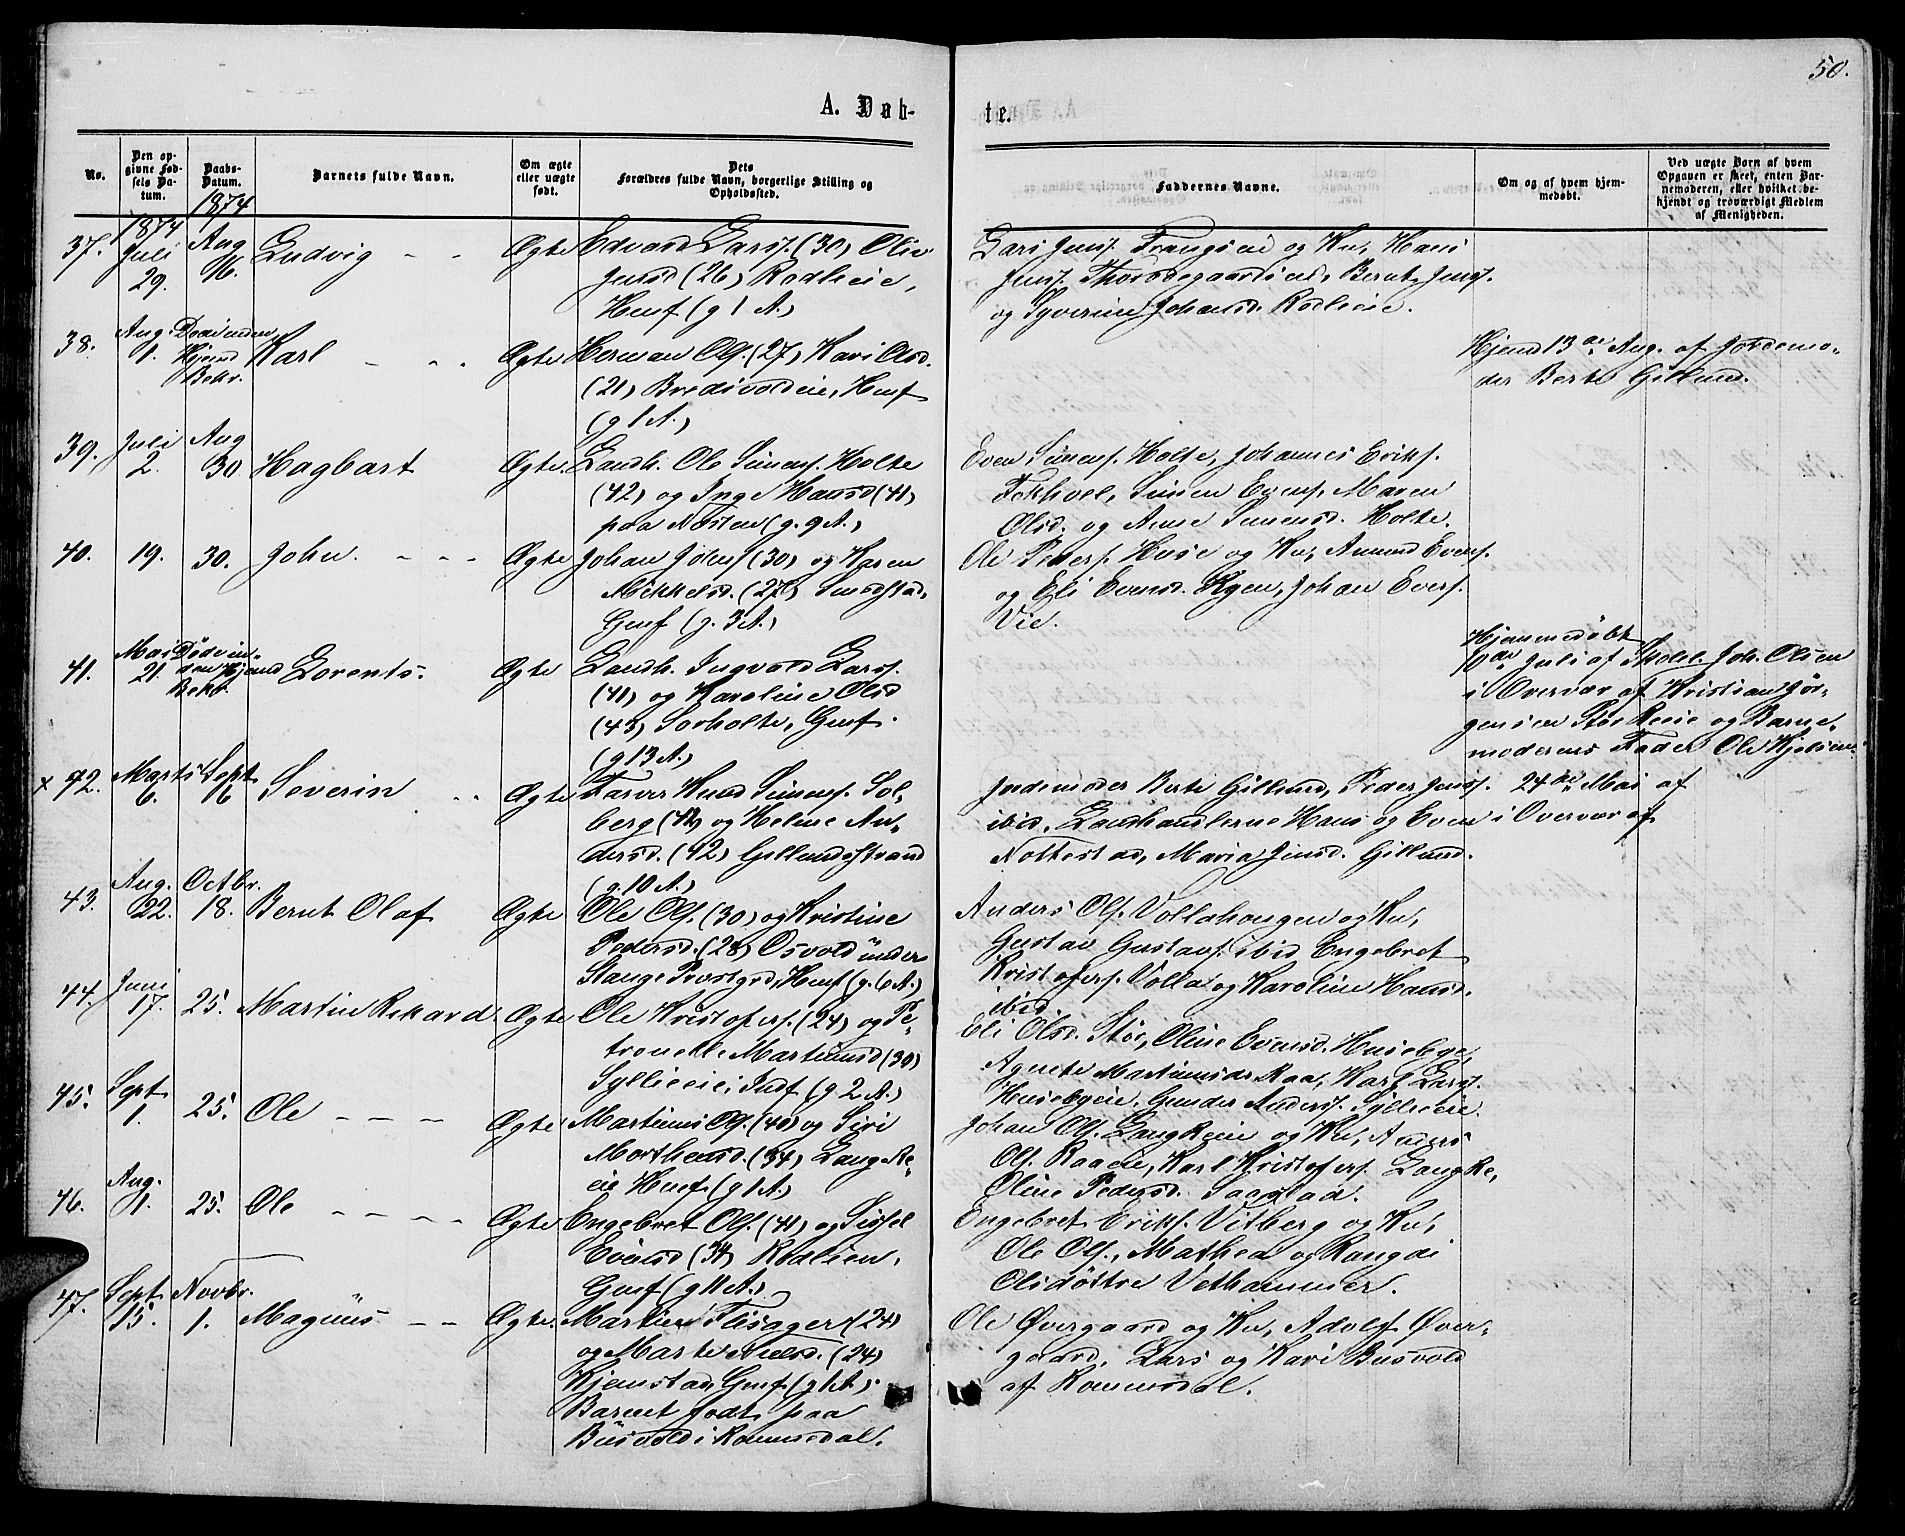 50.
A. Døb-
te.
No.
Den op-
givne Fød-
sels Da-
tum.
Daabs-
Datum.
Barnets fulde Navn.
Om ægte
eller uægte
født.
Dets
Forældres fulde Navn, borgerlige Stilling og
Opholdssted.
Faddernes Navne.
Om og af hvem hjem-
medøbt.
Ved uægte Børn af hvem
Opgaven er skeet, enten Bar-
nemoderen, eller hvilket be-
kjendt og troværdigt Medlem
af Menigheden.
1874
1874
37.
Juli
29.
Aug
16.
Ludvig - -
Ægte
Edvard Larss. (30) Oliv
Jensd (26) Rodlieie,
Husf (g 1 A.)
Lars Jenss. Trangseie og Ku, Hans
Jenss. Thorsdegaardseie, Bernt Jenss.
og Syverine Johansd. Rodlieie.
38.
Aug.
1.
Død inden
Hjemd
Bekr.
Karl - -
Ægte
Herman Ols. (27) Kari Olsd.
(21) Bredsvoldeie, Husf
(g 1 A.)
Hjemd 13de Aug. af Jordemo-
der Berte Gillund.
39.
Juli
2.
Aug
30.
Hagbart
Ægte.
Landh. Ole Simens. Holte
(42) og Inge Hansd (41)
paa Nosten (g. 9 A.)
Even Simens. Holte, Johannes Eriks.
Simen Evens, Maren
Olsd. og Anne Simensd. Holte.
40.
19.
30.
John. - - -
Ægte
Johan Johns (30) og Karen
Mikkelsd. (27) Smedstad,
Gmf (g. 3 A.)
Ole Peders. Huse og Ku, Amund Evens.
og Eli Evensd. Kgen, Johan Evens.
Vie.
41.
Mai
21.
Død in-
den Hjemd
Bekr.
Lorents.
Ægte
Landh. Ingvald Larss.
(41) og Karoline Olsd
(43) Sorholte, Gmf.
(g 13 A.)
Hjemmedøbt
6de Juli af Skolel. Joh. Olsen
i Overvær af Kristian Jør-
gensen Stoe Reeie og Barne-
moderens Fader Ole Kjelsen.
x 42.
Marts
6.
Sept
16
Severin - -
Ægte
Farver Knud Simens. Sol-
berg (42) og Helene An-
dersd. (42) Gillundstrand
(g. 10 A.)
Jordemoder Berte Gillund, Peder Jenss.
ibid. Landhandlerne Hans og Even
Nottestad, Maria Jensd. Gillund.
24de Mai af
i Overvær af
43.
Aug.
22.
Octbr.
18.
Bernt Olaf
Ægte
Ole Ols. (30) og Kristine
Pedersd. (28) Osvold under
Stange Prestgrd, Husf (g. 6 A.)
Anders Ols. Vollahaugen og Ku,
Gustav Gustavs. ibid Engebret
Kristofers. Volla og Karoline Hansd.
ibid.
44.
Juni
17.
25.
Martin Rikard.
Ægte
Ole Kristofers. (24) og Pe-
tronelle Martinusd (30)
Syllieeie, Indf (g 2 A.)
Eli Olsd. Stoe, Oline Evensd. Husebye,
Agnete Martinusdr Raa, Karl Larss.
Husebyeie, Gunder Anderss. Syllieeie.
45.
Sept
1.
25.
Ole - - -
Ægte
Martinus Ols. (40) og Siri
Morthensd. (34) Lang Re-
eie Husf. (g 1 A.)
Johan Ols. Lang Reeie og Ku, Anders
Ols. Raaeie, Karl Kristofers. Lang Re-
Oline Pedersd. Saastad.
46.
Aug.
1.
25.
Ole - - - -
Ægte
Engebret Ols. (41) og Sissel
Evensd (34) Rodlien,
Gmf (g 11 A.)
Engebret Eriks. Vitberg og Ku,
Ole Ols., Mathea og Rangdi
Olsdøttre Vethammer.
47.
Sept
15.
Novbr.
1.
Magnüs - -
Ægte.
Martin Flisager (24)
og Marte Nielsd. (24)
Kjemstad, Gmf (g 1 A).
Barnet født paa
Büsvold i Romedal.
Ole Øvergaard og Ku, Adolf Øver-
gaard, Lars og Kari Busvold
af Rommedal.